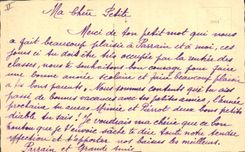 II
Ma Chère Petite
Merci de ton petit mot qui nous
a fait beaucoup plaisir à Parrain et à moi, ces
jours ci tu dois être très occupé par ta rentrée des
classes, nous te souhaitons bon courage pour faire
une bonne année scolaire et faire beaucoup plaisir
à tes bons parents. Nous sommes contents que tu aies
passé de bonnes vacances avec tes petites amies, l'année
prochaine tu auras Annie et Pierrot deux bons petits
diable, tu sais! Je voudrais ma chérie que ce bon
toutou que je t'envoie sache te dire toute notre tendre
affection et t'apporter nos baisers les meilleurs.
Parrain et Grand